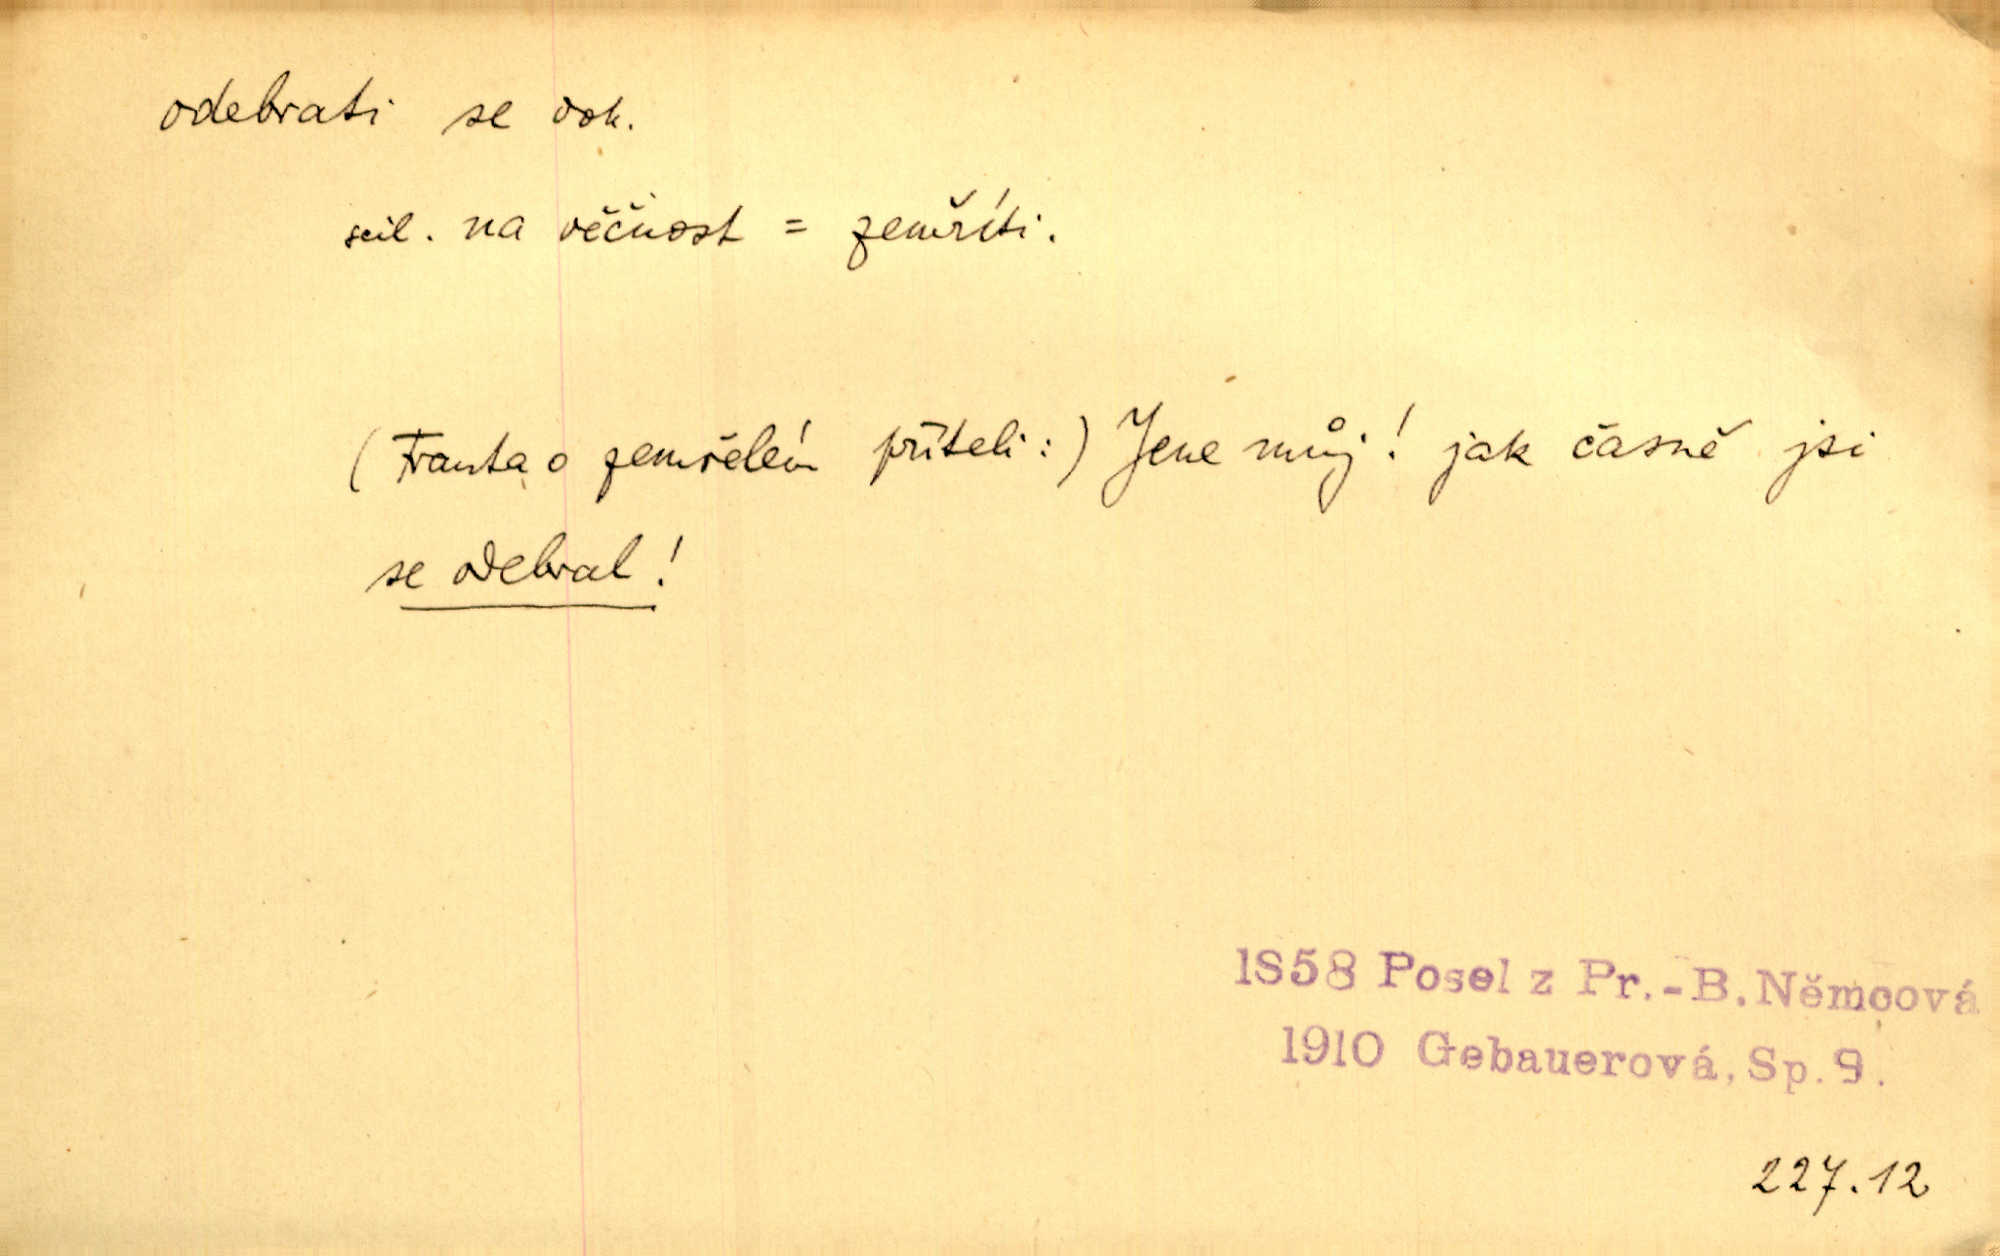 odebrati se dok.
scil. na věčnost = zemříti.
(Franta o zemřelém příteli:) Jene můj! jak časně jsi
se odebral!
1858 Posel z Pr.-B. Němcová
1910 Gebauerová, Sp. 9.
227.12